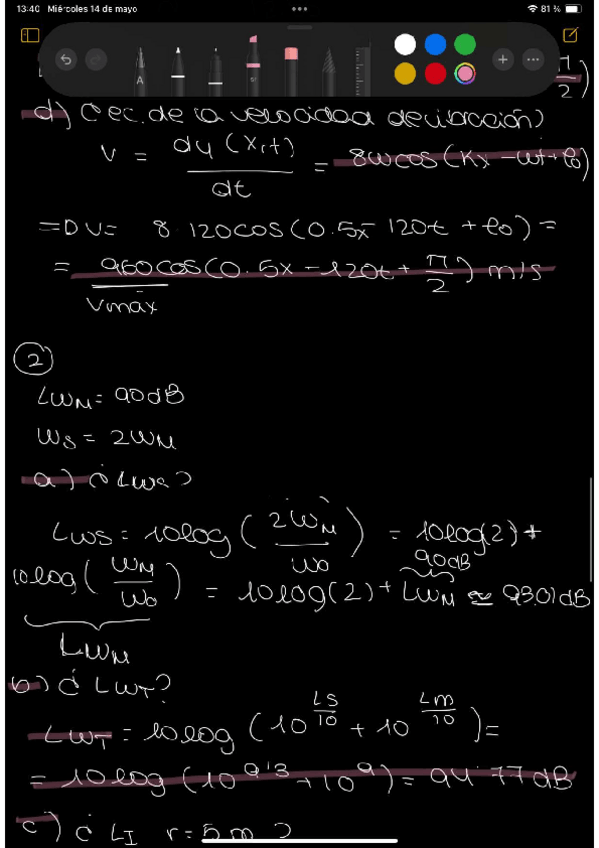 13:40 Miércoles 14 de mayo
81 %
A
π/2)
d) ¿ec. de la velocidad de vibración?
V = dy(x,t)/dt = 8ωcos(Kx - ωt + φ0)
=D V= 8·120cos(0.5x - 120t + φ0) =
= 960cos(0.5x - 120t + π/2) m/s
Vmáx
2
LWM = 90dB
WS = 2WM
a) ¿LWS?
LWS = 10log(2WM/W0) = 10log(2) +
90dB
10log(WM/W0) = 10log(2) + LWM ≃ 93.01dB
LWM
b) ¿LWT?
LWT = 10log(10^(LS/10) + 10^(LM/10)) =
= 10log(10^9'3 + 10^9) = 94'77dB
c) ¿LI r=5m?